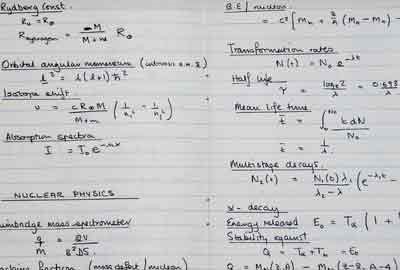 Rydberg Const.
R∞ = R∞
R hydrogen = M / M+m R∞
Orbital angular momentum
L² = l(l+1) ħ²
Isotope shift.
ν = cR∞M / M+m (1/n₁² - 1/n₂²)
Absorption spectra
I = I₀ e^-nx
NUCLEAR PHYSICS
mass spectrometer
q/m = 2V / B²DS
fraction (mass defect / nucleon)
B.E / nucleon
= c² [Mn + Z/A (MH - Mn) -
Transformation rates
N(t) = N₀ e^-λt
Half life
τ = loge2 / λ = 0.693 / λ
Mean life time
t̄ = ∫₀^N₀ t dN / N₀
t̄ = 1/λ
Multistage decays.
N₂(t) = N₁(0) λ₁ / λ₂ - λ₁ (e^-λ₁t -
α - decay
Energy released E₀ = Tα (1 +
Stability against
Q = Tα + Tb = E₀
Q = M(Z,A) - M(Z-2, A-4)